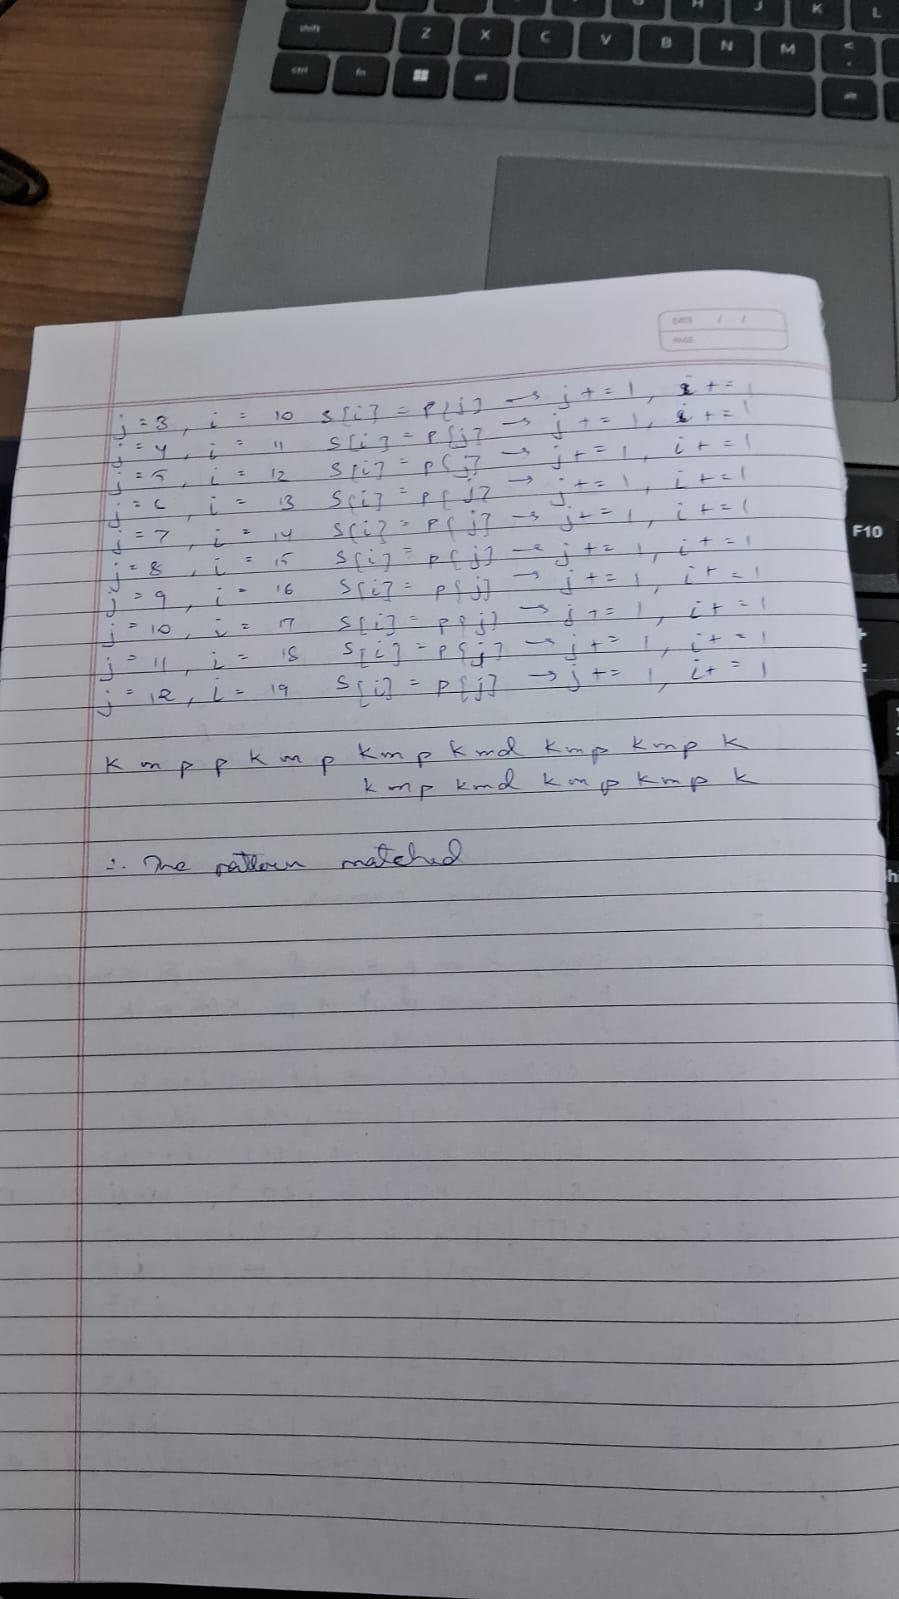 shift Z X C V B N M < ,
ctrl fn alt alt
H J K L
DATE / /
PAGE
F10
j = 3, i = 10 s[i] = p[j] → j += 1, i += 1
j = 4, i = 11 s[i] = p[j] → j += 1, i += 1
j = 5, i = 12 s[i] = p[j] → j += 1, i += 1
j = 6, i = 13 s[i] = p[j] → j += 1, i += 1
j = 7, i = 14 s[i] = p[j] → j += 1, i += 1
j = 8, i = 15 s[i] = p[j] → j += 1, i += 1
j = 9, i = 16 s[i] = p[j] → j += 1, i += 1
j = 10, i = 17 s[i] = p[j] → j += 1, i += 1
j = 11, i = 18 s[i] = p[j] → j += 1, i += 1
j = 12, i = 19 s[i] = p[j] → j += 1, i += 1
k m p p k m p k m p k m d k m p k m p k
k m p k m d k m p k m p k
∴ The pattern matched